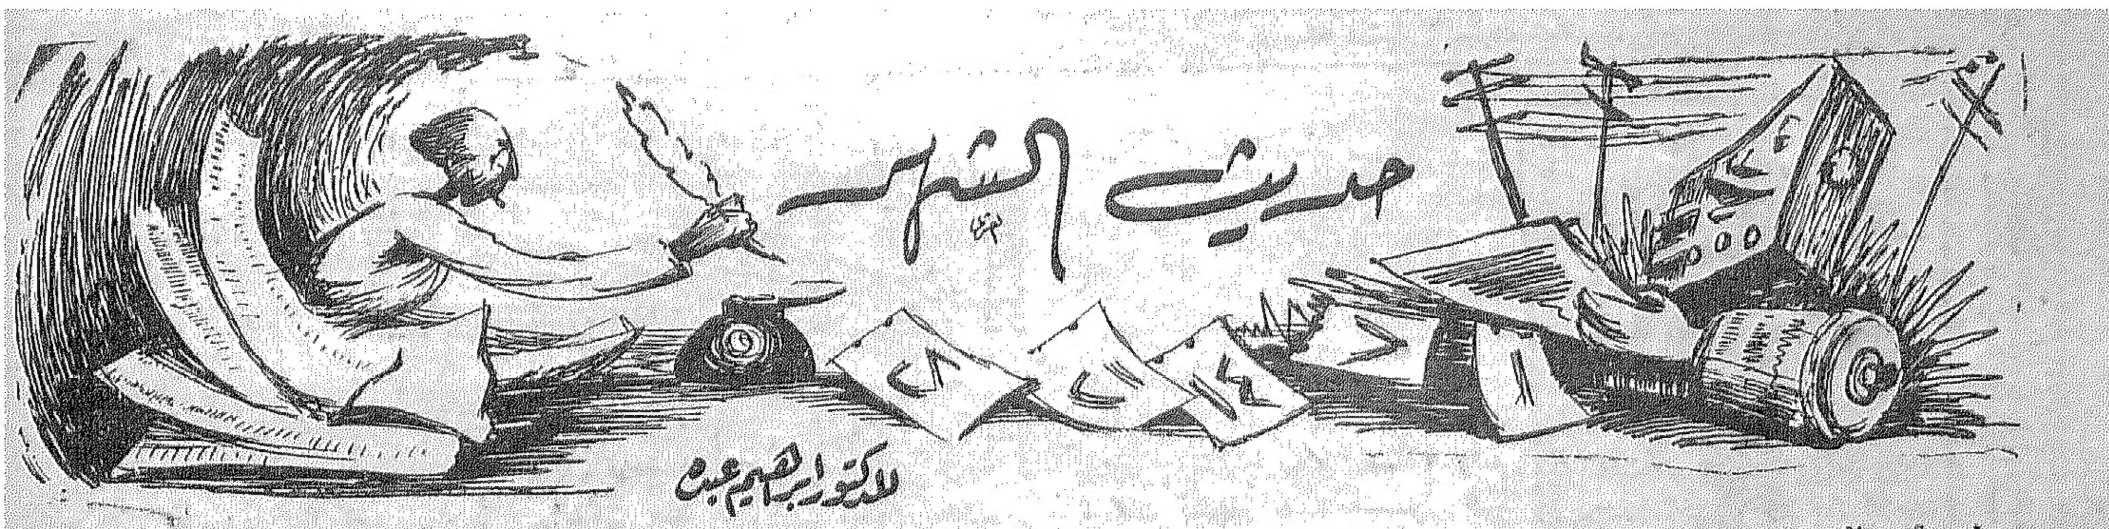 حديث الشهر
للدكتور ابراهيم عبده